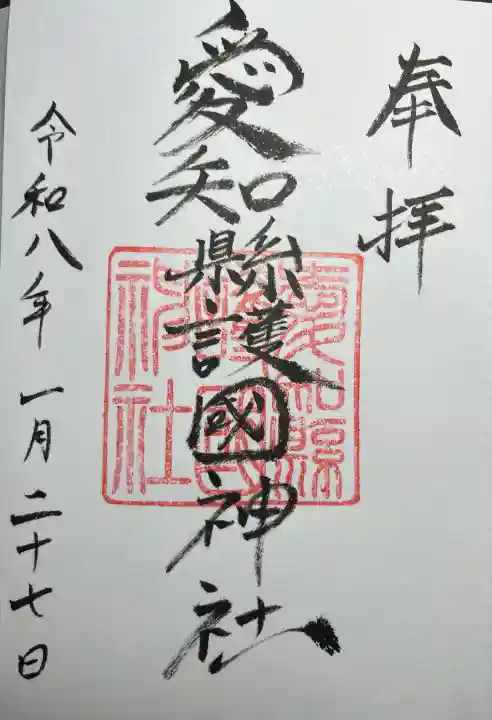 奉拝
愛知縣護國神社
愛知縣
護國
神社
令和八年一月二十七日